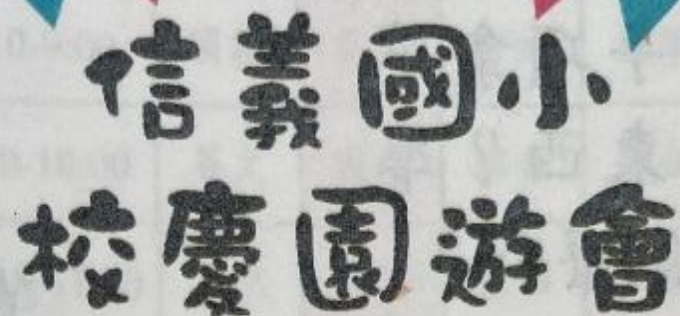 信義國小
校慶園遊會